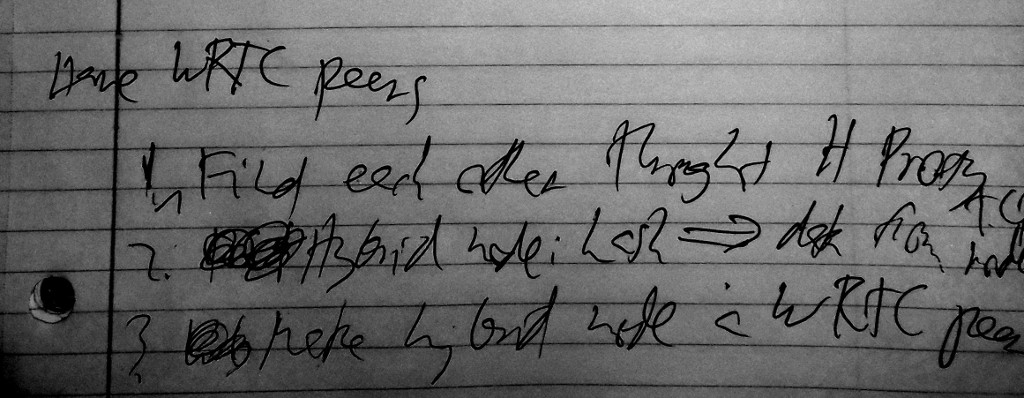 Have WRTC peers
1. Find each other through H
2. Hybrid node: hash ⇒ data from
3. Make hybrid node a WRTC peer